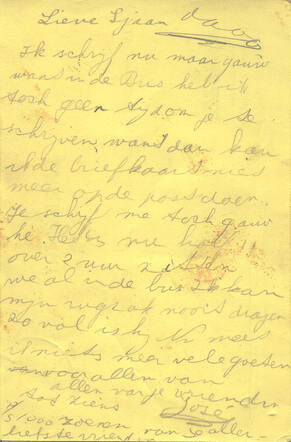 Lieve Sjaan
Ik schrijf nu maar gauw
want in de Bus heb ik
toch geen tijd om je te
schrijven, want dan kan
ik de briefkaart niet
meer op de post doen.
Je schrijft me toch gauw
hè. Het is nu half 11
over 2 uur zitten
we al in de bus Ik kan
mijn rugzak nooit dragen
zo vol is hij. Nu meer
niets meer vele groeten
voor allen van
allen van je vriendin
tot ziens José
1000 zoenen van je aller-
liefste vriendin